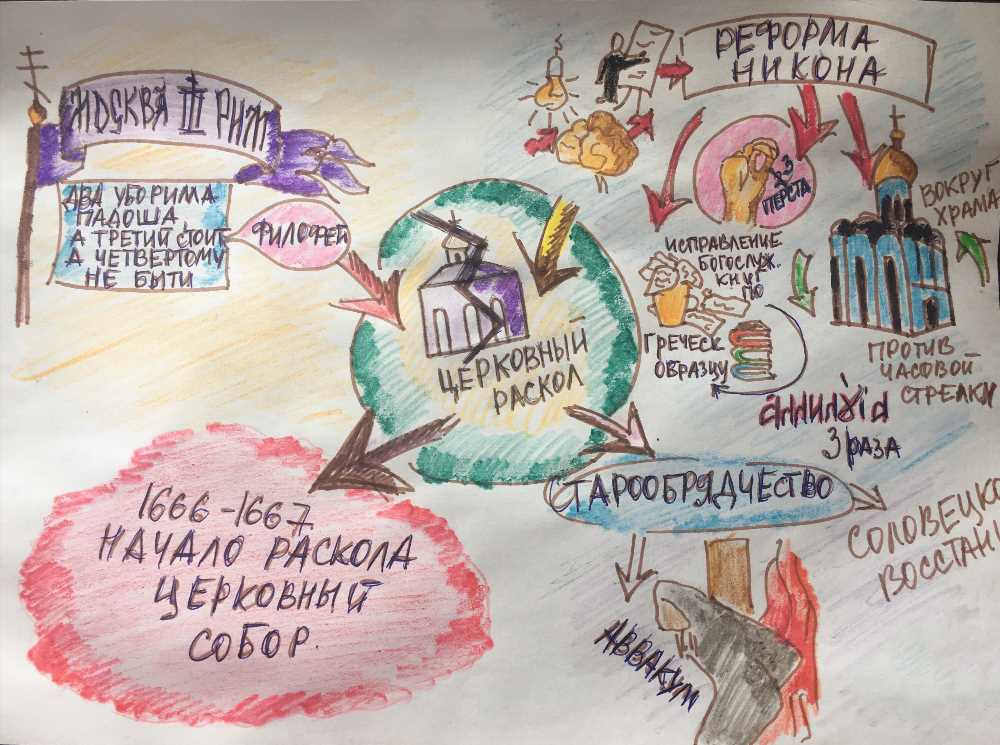 МОСКВА III РИМ
ДВА УБО РИМА
ПАДОША,
А ТРЕТИЙ СТОИТ
А ЧЕТВЕРТОМУ
НЕ БЫТИ
ФИЛОФЕЙ
ЦЕРКОВНЫЙ
РАСКОЛ
РЕФОРМА
НИКОНА
ПЕРСТА
ИСПРАВЛЕНИЕ
БОГОСЛУЖ.
КНИГ
ПО
ГРЕЧЕСК.
ОБРАЗЦУ
ВОКРУГ
ХРАМА
ПРОТИВ
ЧАСОВОЙ
СТРЕЛКИ
3 РАЗА
1666-1667
НАЧАЛО РАСКОЛА
ЦЕРКОВНЫЙ
СОБОР.
СТАРООБРЯДЧЕСТВО
СОЛОВЕЦКО
ВОССТАН
АВВАКУМ